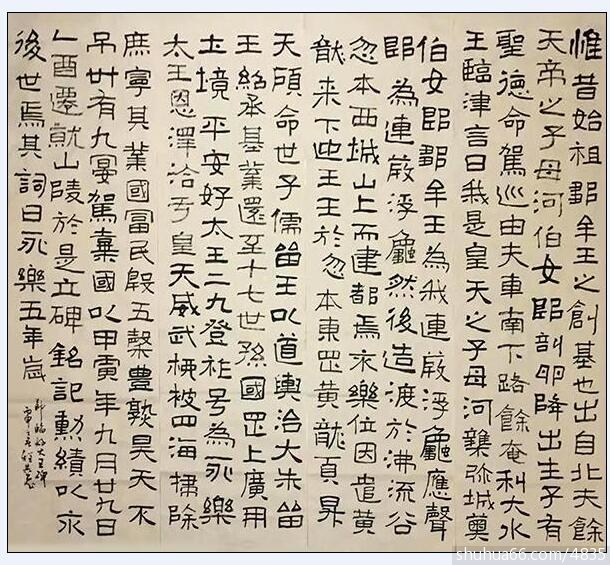 惟昔始祖鄒牟王之創基也出自北夫餘
天帝之子母河伯女郎剖卵降出生子有
聖德命駕巡由夫車南下路餘奄利大水
王臨津言曰我是皇天之子母河弥城
伯女郎鄒牟王為我連葭浮龜應聲
即為連葭浮龜然後造渡於沸流谷
忽本西城山上而建都焉永樂位因遣黃
龍来下迎王王於忽本東罡黃龍頁昇
天顧命世子儒留王以道輿治大朱留
王紹承基業還至十七世孫國罡上廣開
土境平安好太王二九登祚号為永樂
太王恩澤洽于皇天威武柳被四海掃除
庶寧其業國富民殷五穀豊熟昊天不
吊卅有九宴駕棄國以甲寅年九月廿九日
乙酉遷就山陵於是立碑銘記勳績以永
後世焉其詞曰永樂五年歲
節臨好太王碑
shuhua66.com/4835